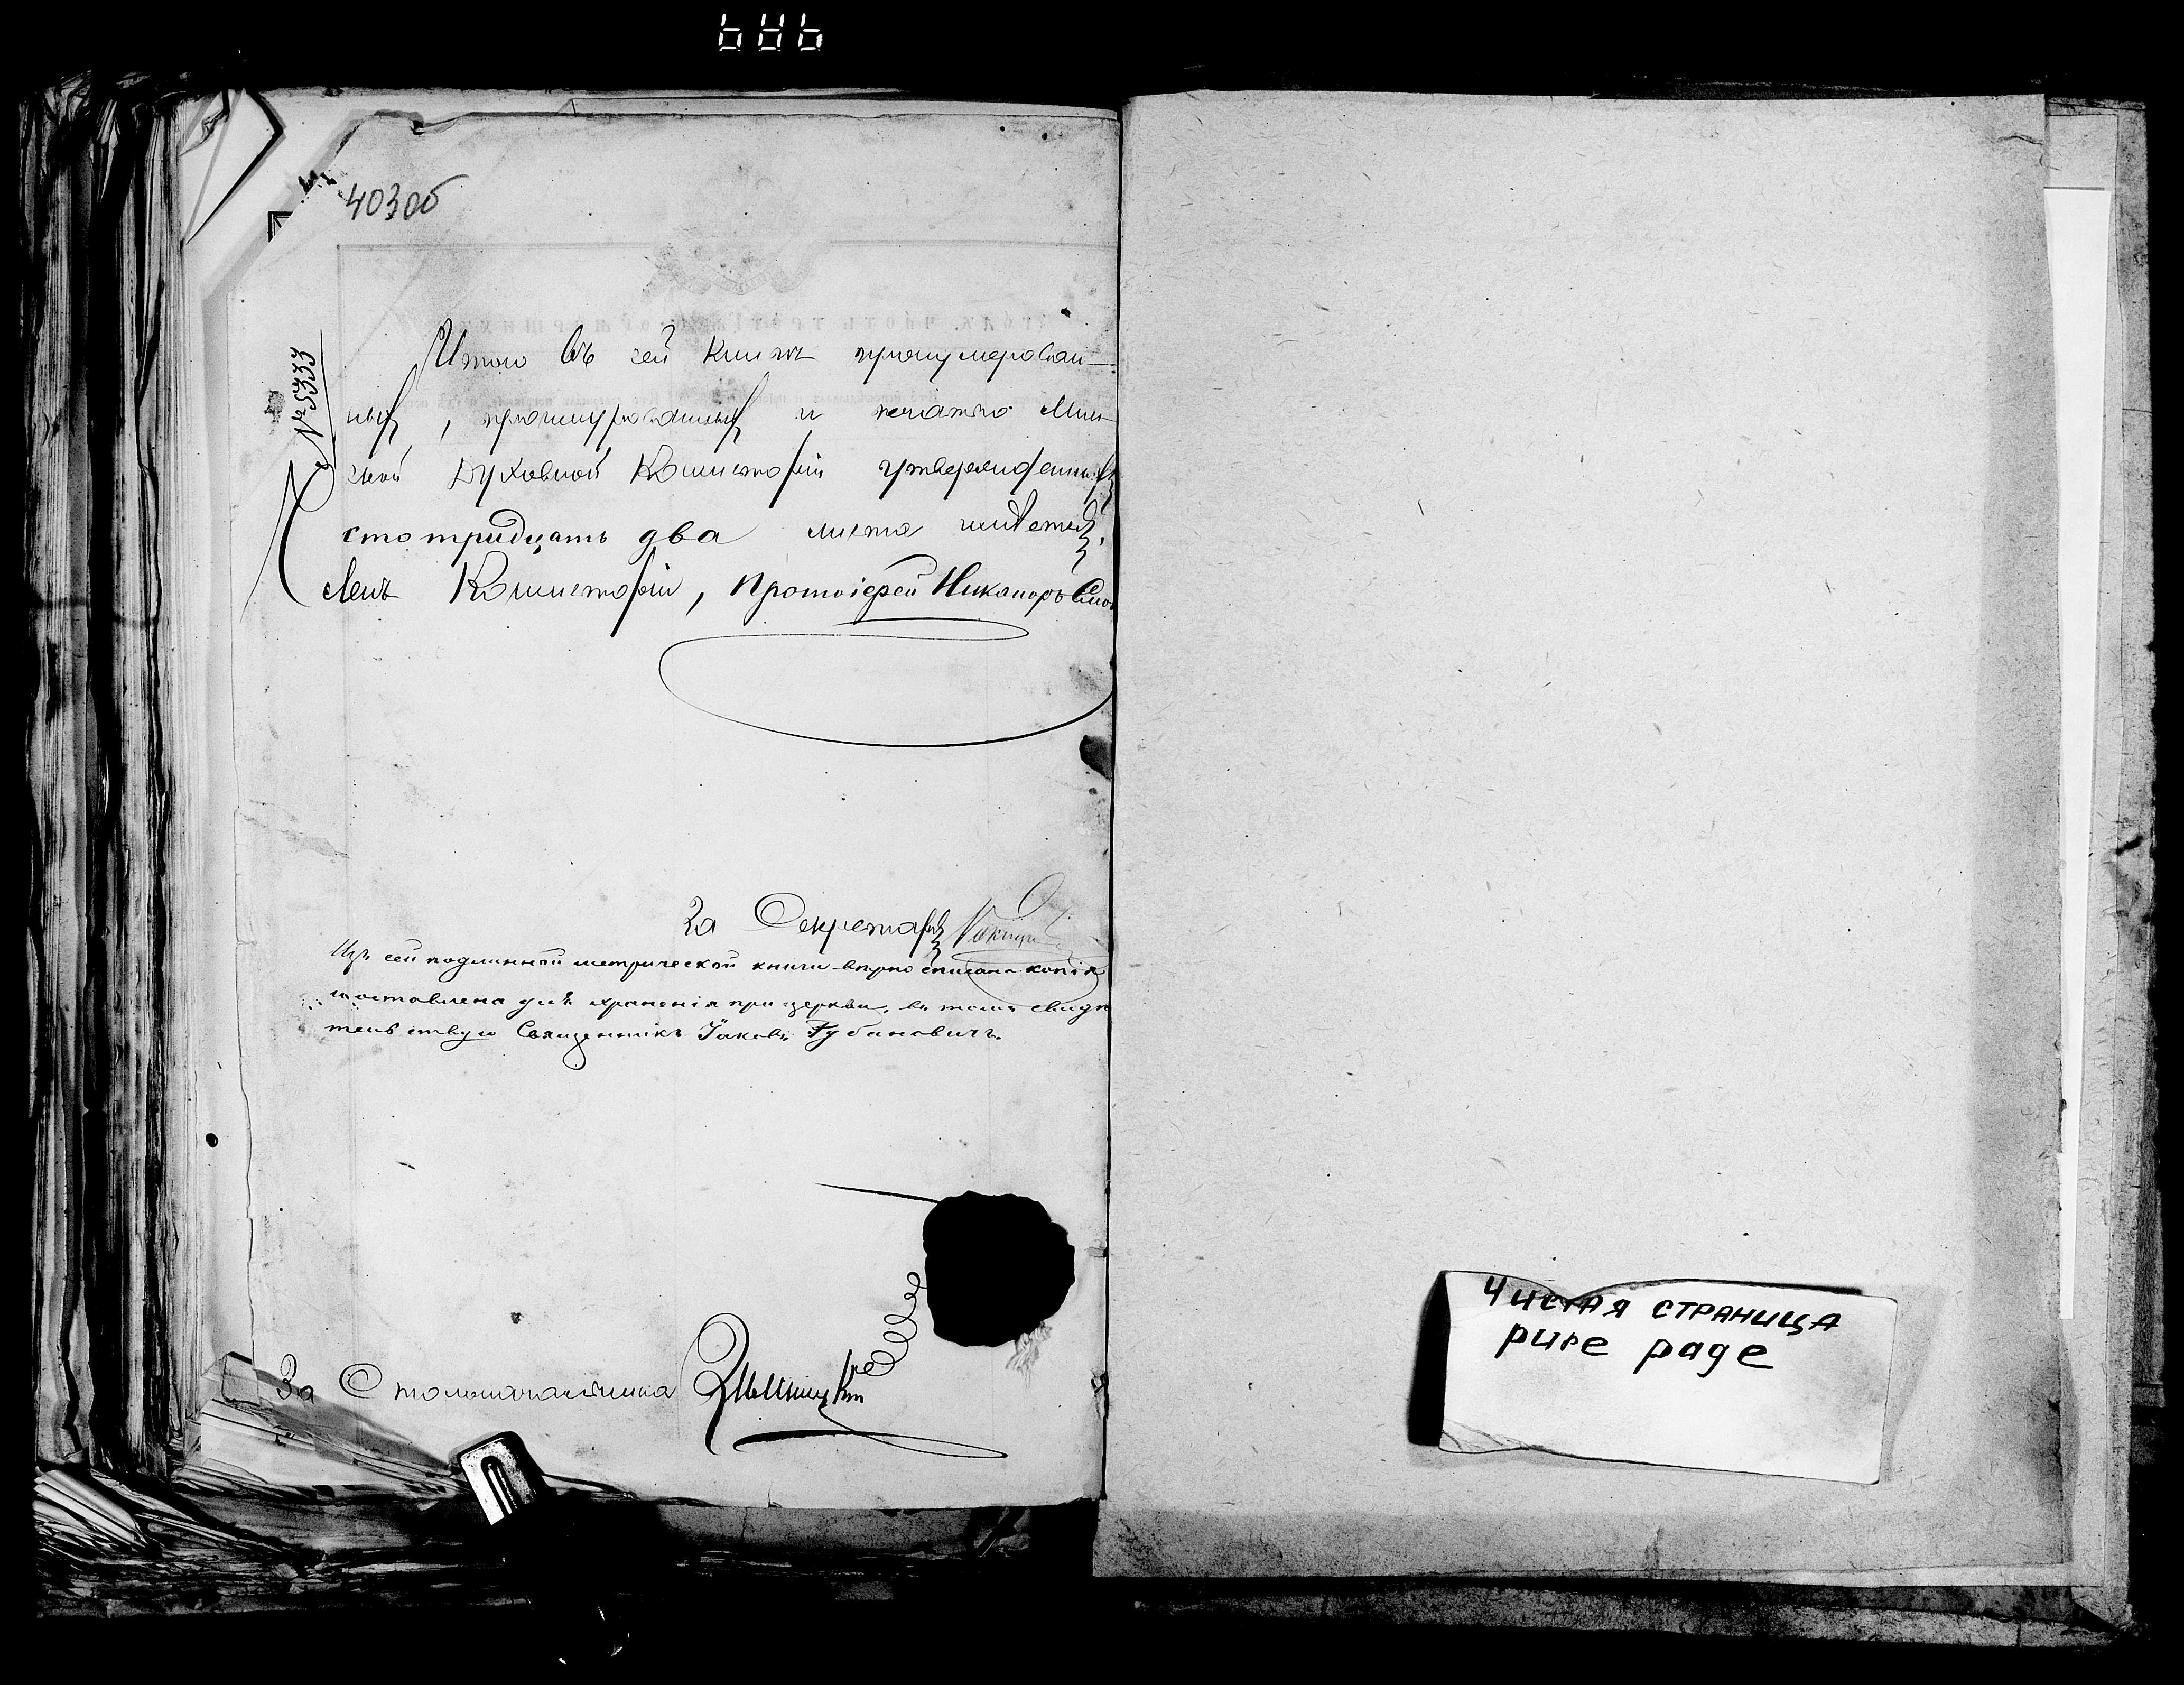 403 об
№ 5333
Итого въ сей книгѣ пронумерован-
ныхъ, прошнурованныхъ и печатью Мин-
ской Духовной Консисторіи утвержденныхъ
сто тридцать два листа имѣется.
Членъ Консисторіи, Протоіерей Никаноръ
За Секретаря
Изъ сей подлинной метрической книги вѣрно списана копія
и оставлена для храненія при церкви, въ томъ свидѣ
тельствую Священникъ Іаковъ Губановичъ.
За Столоначальника
Чистая страница
pure page